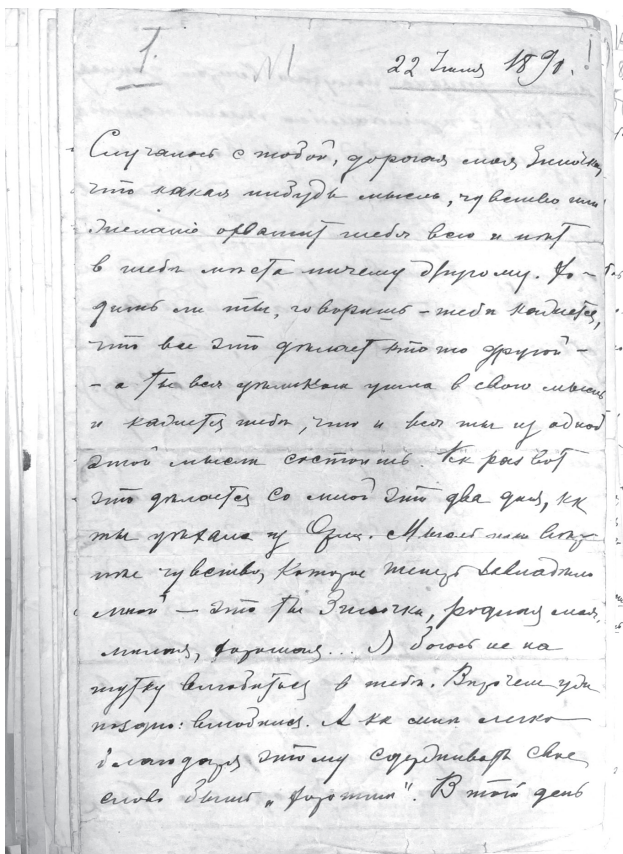 1.
22 Июля 1890.
Случалось с тобой, дорогая моя Зиночка,
что какая нибудь мысль, чувство или
желание охватит тебя всю и нѣт
в тебѣ мѣста ничему другому. Хо-
дишь ли ты, говоришь – тебѣ кажется,
что все это дѣлает кто то другой –
– а ты вся цѣликом ушла в свою мысль
и кажется тебѣ, что и вся ты из одной
этой мысли состоишь. Как раз вот
это дѣлается со мной эти два дня, как
ты уѣхала из Орла. Мысль или
чувство, которое теперь завладѣло
мной – это ты Зиночка, родная моя,
милая, хорошая... Я боюсь не на
шутку влюбиться в тебя. Впрочем уж
поздно: влюбился. А как мнѣ легко
благодаря этому сдерживать свое
слово быть „хорошим“. В тот день